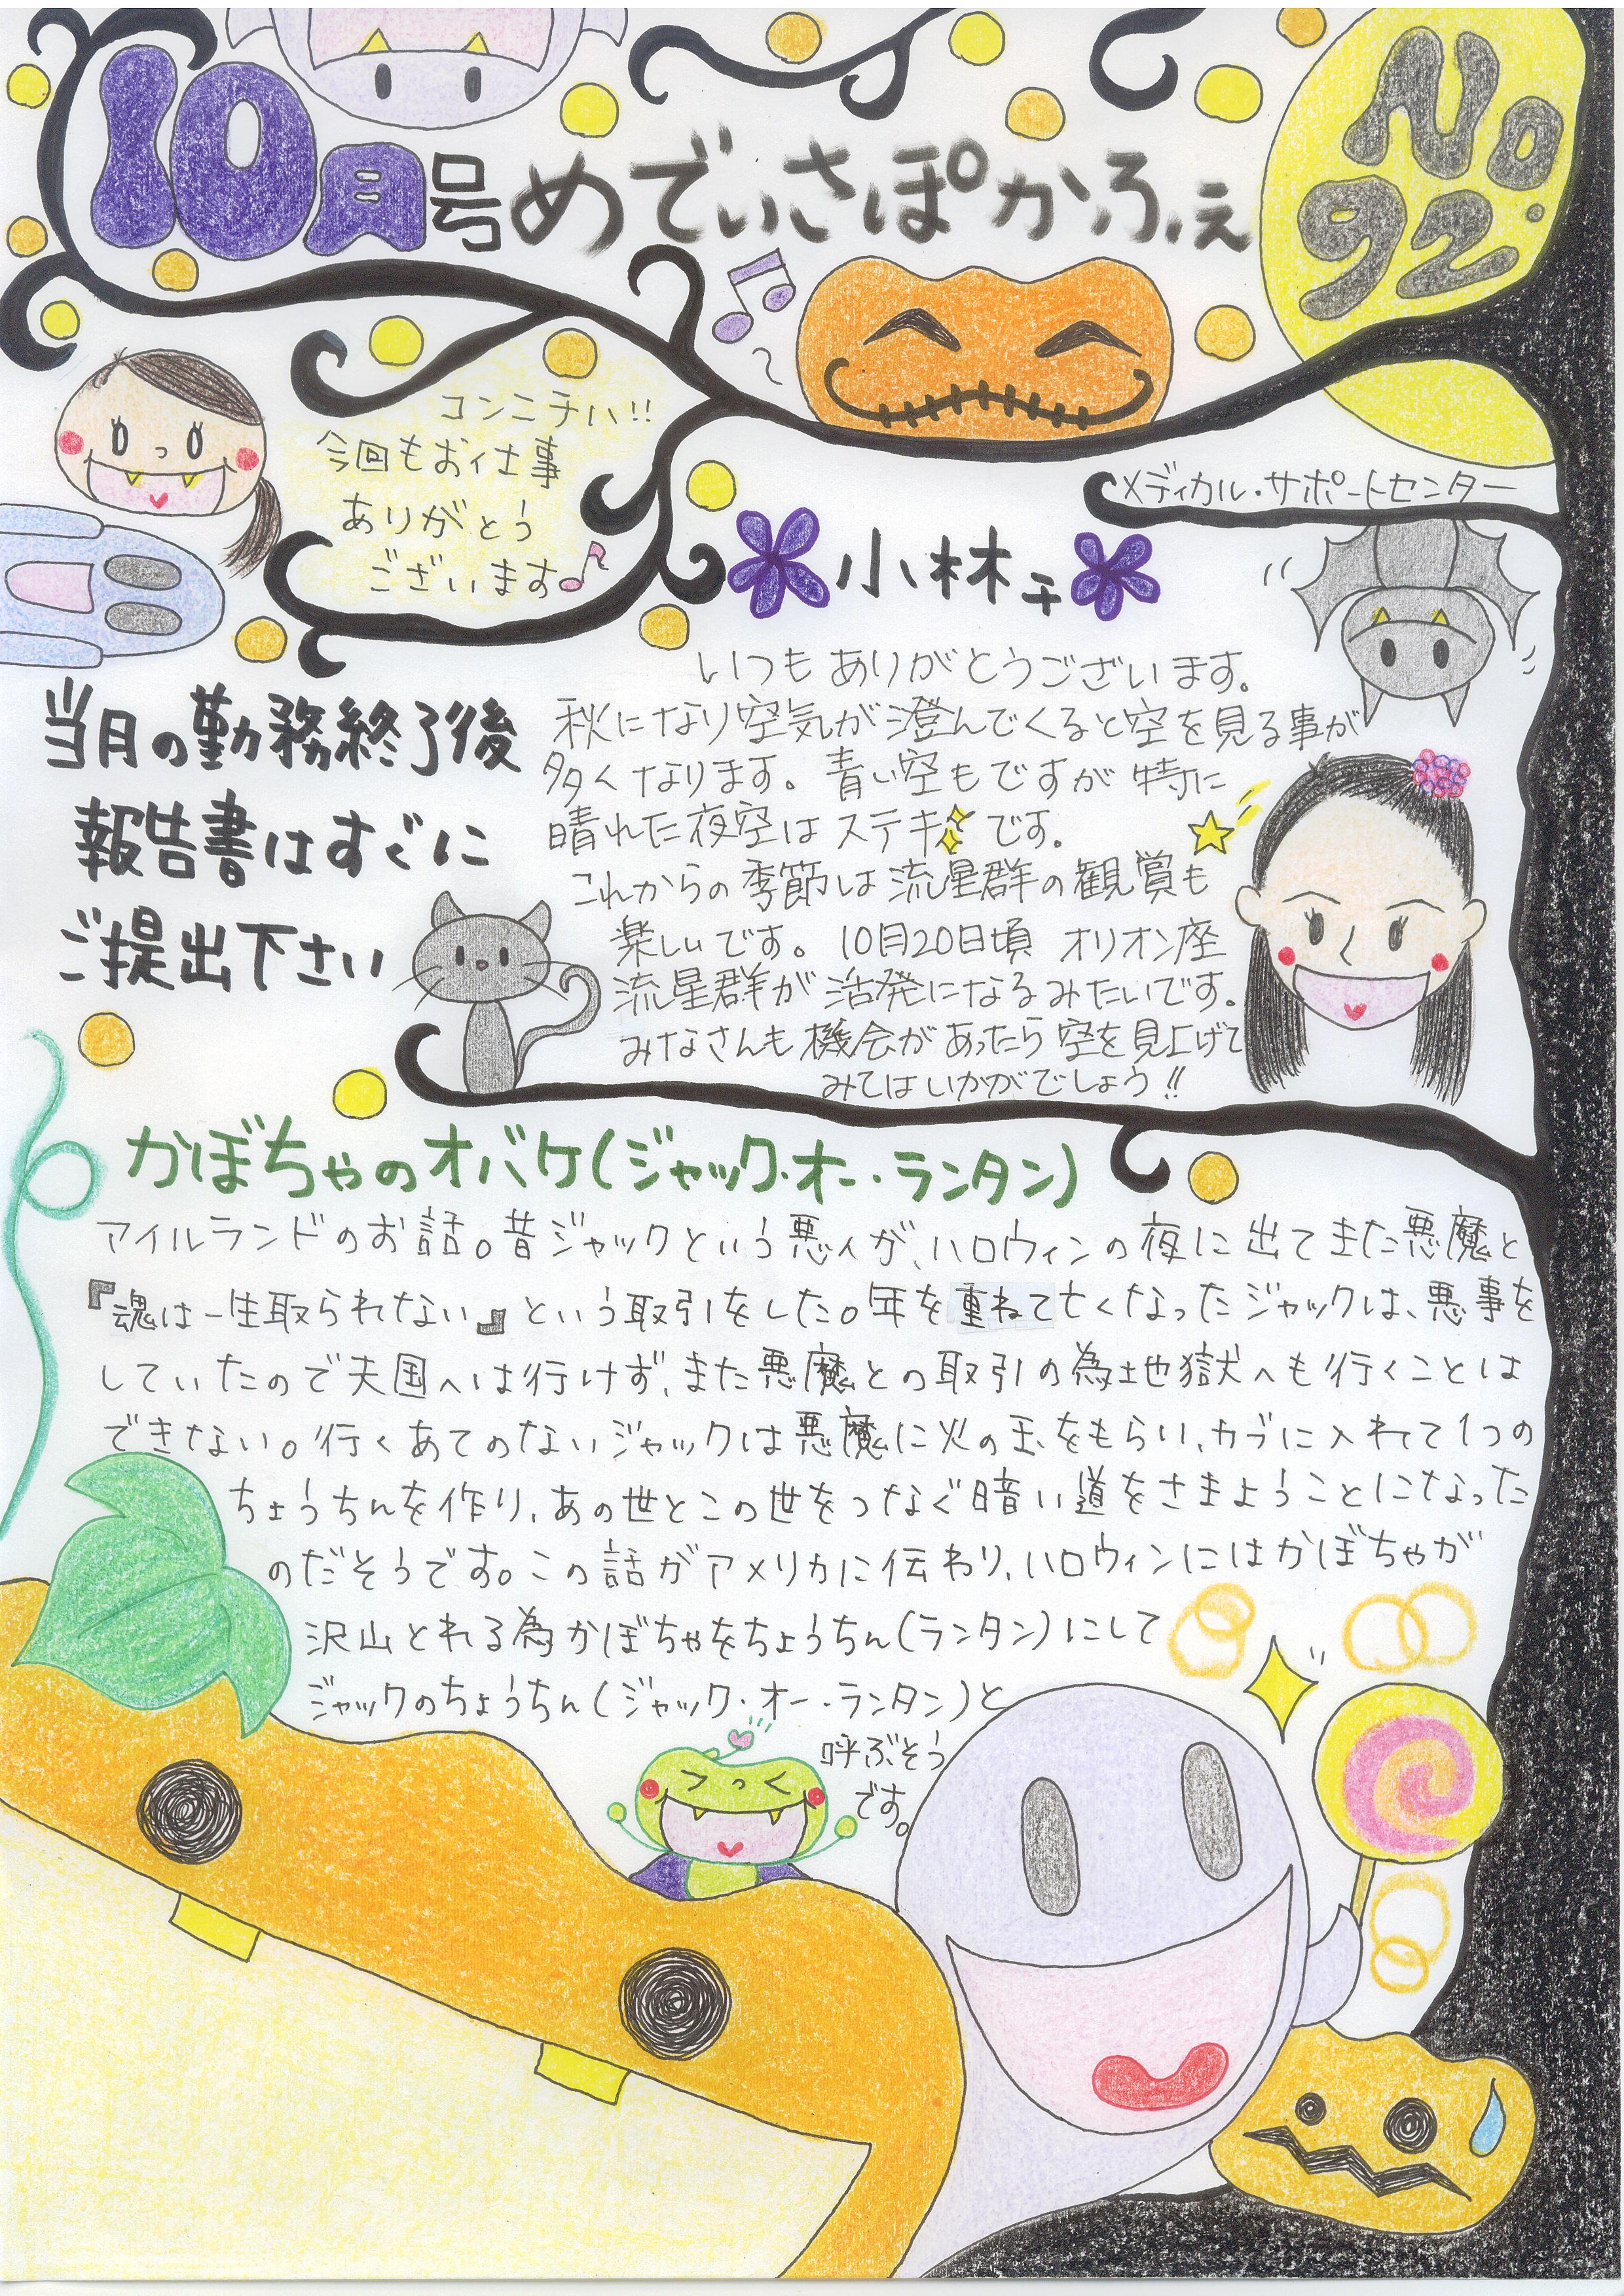 10月号 めでぃさぽかふぇ
No.92
コンニチハ!!
今回もお仕事
ありがとう
ございます♪
メディカル・サポートセンター
小林千
いつもありがとうございます。
秋になり空気が澄んでくると空を見る事が
多くなります。青い空もですが特に
晴れた夜空はステキです。
これからの季節は流星群の観賞も
楽しいです。10月20日頃 オリオン座
流星群が活発になるみたいです。
みなさんも機会があったら空を見上げて
みてはいかがでしょう!!
当月の勤務終了後
報告書はすぐに
ご提出下さい
かぼちゃのオバケ(ジャック・オー・ランタン)
アイルランドのお話。昔ジャックという悪人が、ハロウィンの夜に出てきた悪魔と
『魂は一生取られない』という取引をした。年を重ねて亡くなったジャックは、悪事を
していたので天国へは行けず、また悪魔との取引の為地獄へも行くことは
できない。行くあてのないジャックは悪魔に火の玉をもらい、カブに入れて1つの
ちょうちんを作り、あの世とこの世をつなぐ暗い道をさまようことになった
のだそうです。この話がアメリカに伝わり、ハロウィンにはかぼちゃが
沢山とれる為かぼちゃをちょうちん(ランタン)にして
ジャックのちょうちん(ジャック・オー・ランタン)と
呼ぶそう
です。